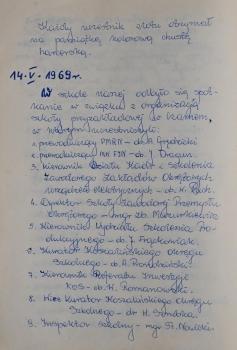 Każdy uczestnik zlotu otrzymał
na pamiątkę kolorową chustę
harcerską.
14.V.1969 r.
W szkole naszej odbyło się spot-
kanie w związku z organizacją
szkoły przyzakładowej w
w którym uczestniczyli:
1. przewodniczący PMRN - ob. A.
2. przewodniczący - ob. J. Dragun
3. Kierownik Działu Kadr i Szkolenia
Zawodowego Zakładów Okrętowych
Urządzeń elektrycznych - ob. H.
4. Dyrektor Szkoły Zawodowej Przemysłu
Okrętowego - mgr Zb.
5. Kierownik Wydziału Szkolenia Pro-
dukcyjnego - ob. J. Frąckowiak
6. Kurator Koszalińskiego Okręgu
Szkolnego - ob. A.
7. Kierownik Referatu Inwestycji
KOS - ob. H. Romanowski
8. Wice Kurator Koszalińskiego Okręgu
Szkolnego - dr H.
9. Inspektor Szkolny - mgr St.